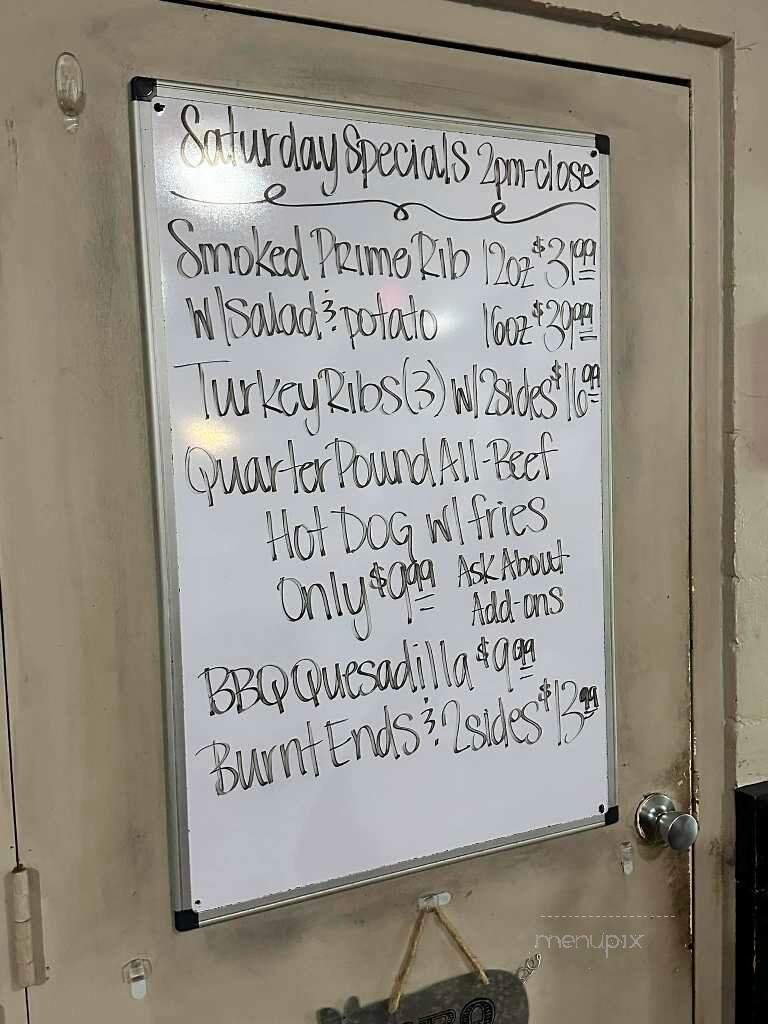 Saturday Specials 2pm-close
Smoked Prime Rib 12oz $31.99
w/Salad & potato 16oz $39.99
Turkey Ribs (3) w/ 2sides $16.99
Quarter Pound All-Beef
Hot Dog w/ fries
Only $9.99 Ask About
Add-ons
BBQ Quesadilla $9.99
Burnt Ends & 2sides $13.99
menupix